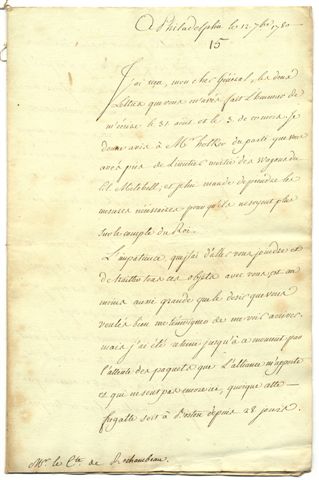 A Philadelphie le 12 7bre 1780
15
J'ai reçu, mon cher Général, les deux
Lettres que vous m'avés fait l'honneur de
m'écrire le 31 aout et le 3 de ce mois. Je
donne avis à Mr holker du parti que vous
avés pris de licentier moitié des wagons du
Cel Mitchell, et je lui mande de prendre les
mesures nécéssaires pour qu'ils ne soyent plus
sur le compte du Roi.
L'impatience que j'ai d'aller vous joindre et
de traitter tous ces objets avec vous est au
moins aussi grande que le desir que vous
voulés bien me témoigner de me voir arriver,
mais j'ai été retenu jusqu'à ce moment par
l'attente des paquets que L'alliance m'apporte
et qui ne sont pas encore ici, quoique cette
frégatte soit à Boston depuis 28 jours.
Mr. le Cte. de Rochambeau.